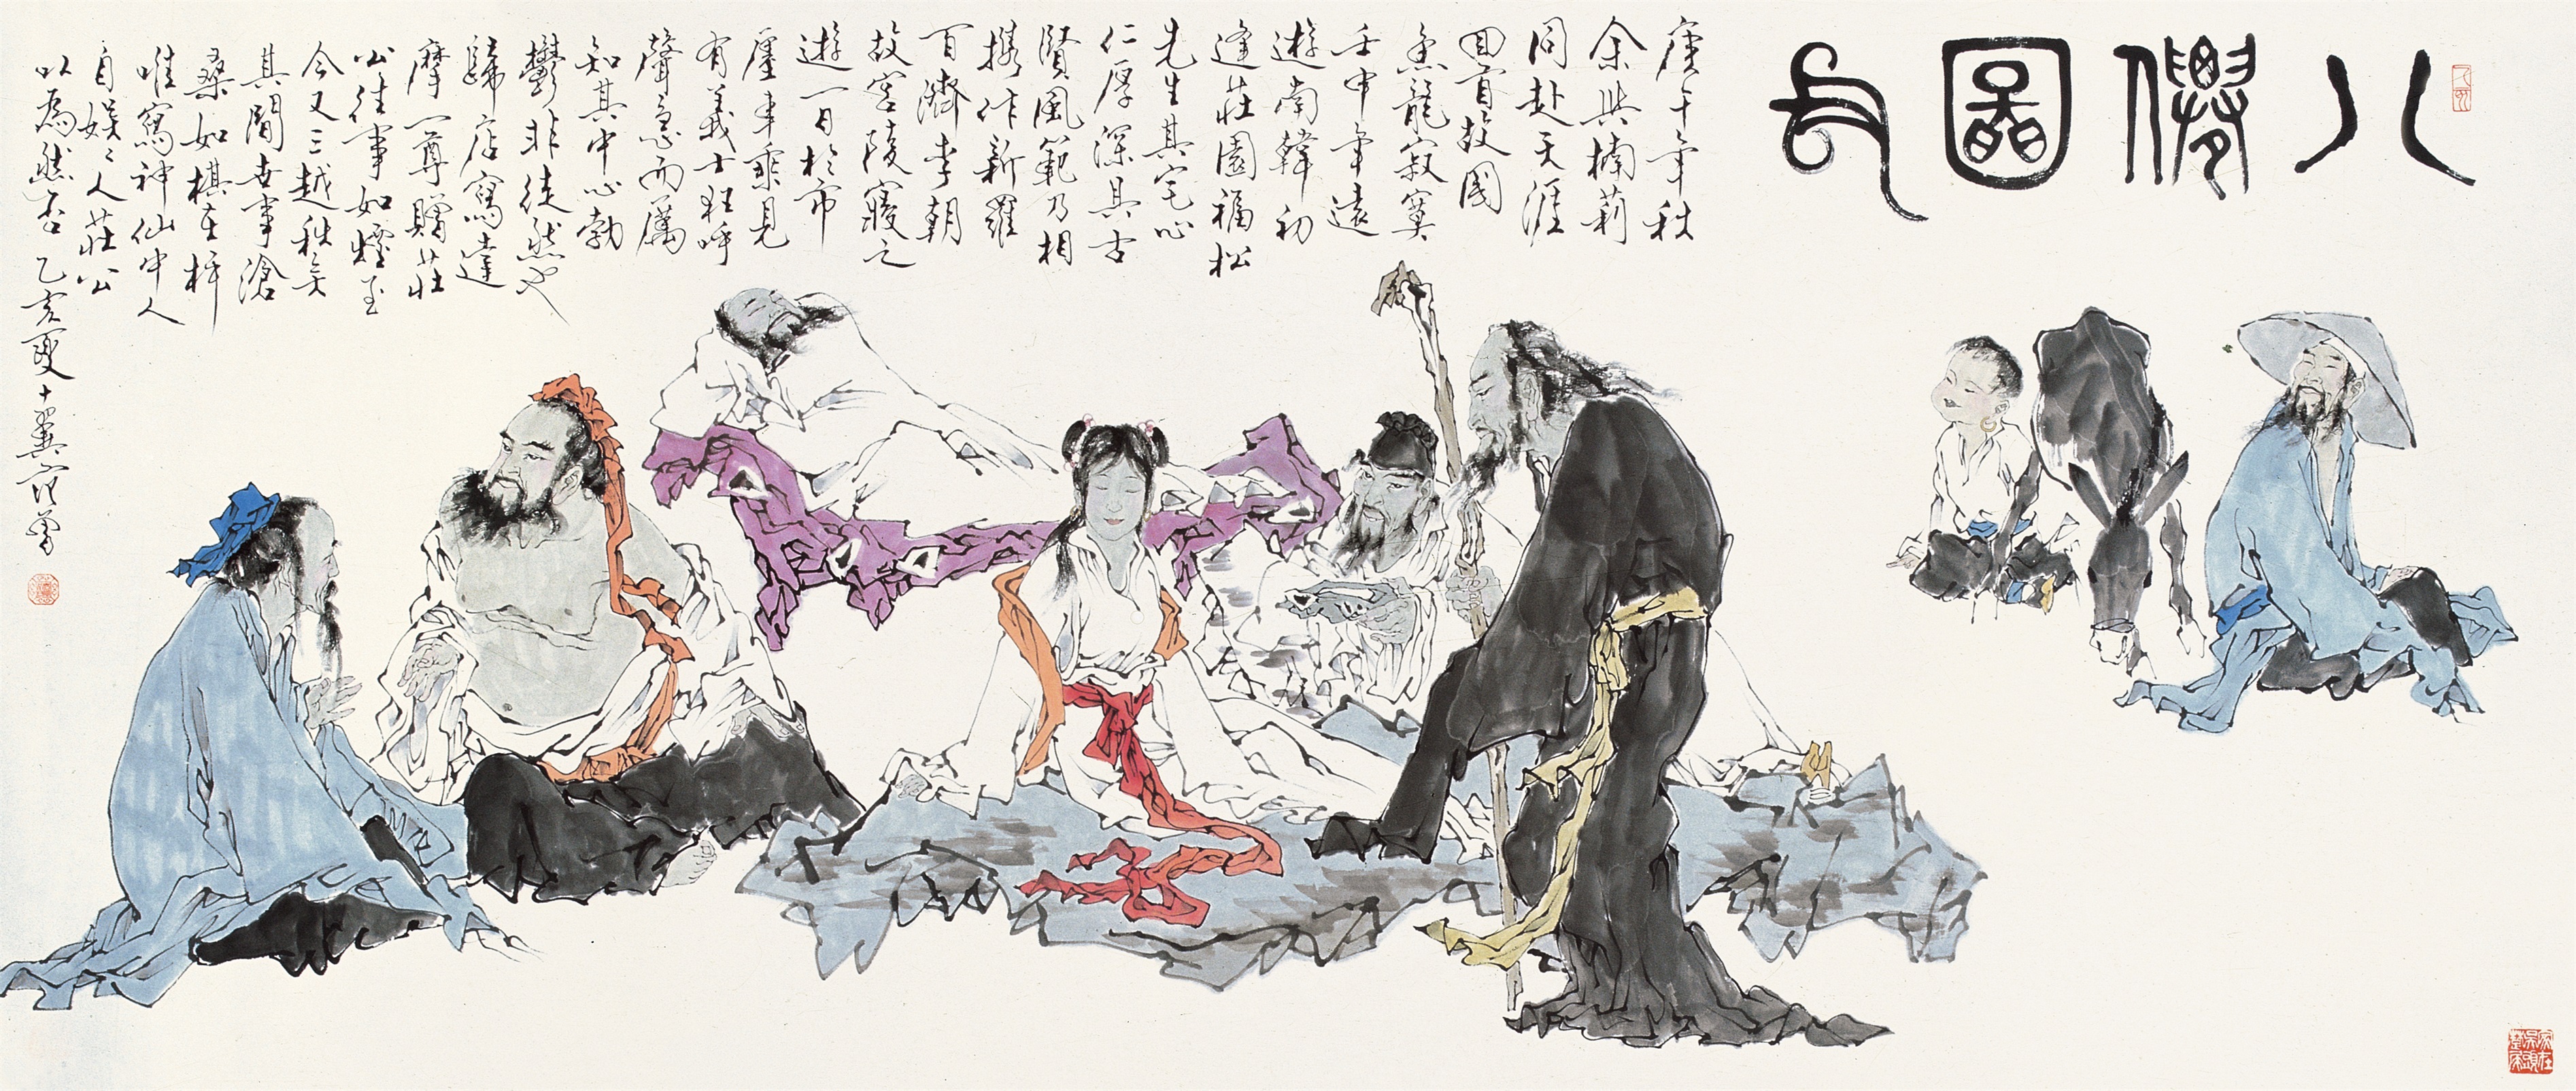 八僊圖卷
庚午年秋
余與楠莉
同赴天涯
回首故國
魚龍寂寞
壬申年遠
遊南韓初
逢莊園福松
先生其宅心
仁厚深具古
賢風範乃相
携作新羅
百濟李朝
故宮陵寢之
遊一日於市
廛車乘見
有義士狂呼
聲急而厲
知其中心勃
鬱非徒然也
歸店寫達
摩一尊贈莊
公往事如烟至
今又三越秋矣
其間世事滄
桑如棋在枰
唯寫神仙中人
自娛々人莊公
以為然否 乙亥夏十翼范曾
家在吳頭楚尾